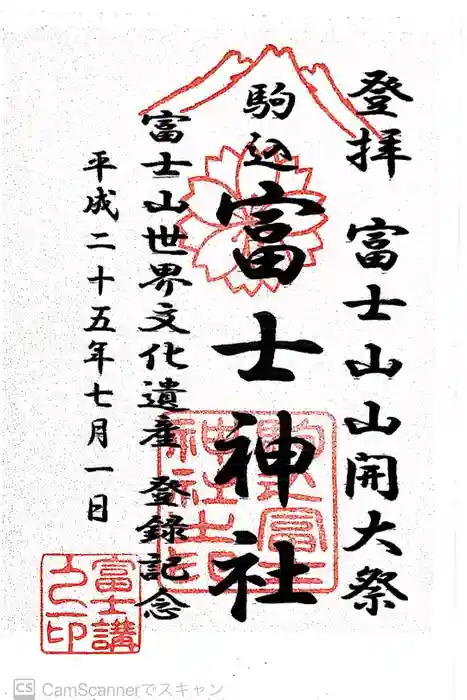 登拝 富士山山開大祭
駒込 富士神社
富士山世界文化遺産 登録記念
平成二十五年七月一日
駒込富士神社印
富士講之印
CS CamScannerでスキャン